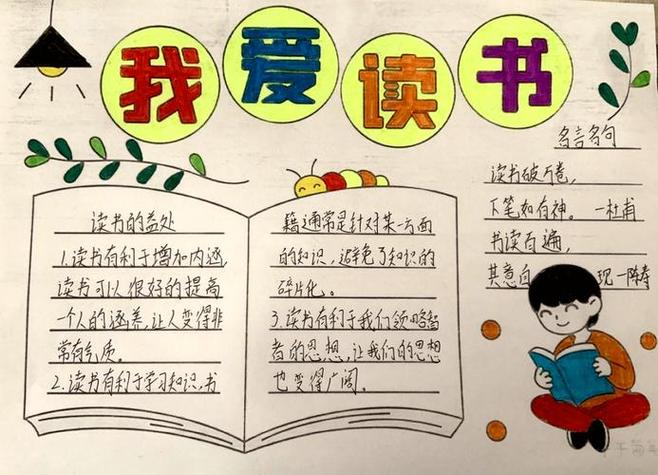 我爱读书
名言名句
读书破万卷，
下笔如有神。一杜甫
书读百遍，
其意自现一陈寿
读书的益处
1.读书有利于增加内涵，
读书可以很好的提高
一个人的涵养，让人变得非
常有气质。
2.读书有利于学习知识，书
籍通常是针对某一方面
的知识，避免了知识的
碎片化。
3.读书有利于我们领略智
者的思想，让我们的思想
也变得广阔。